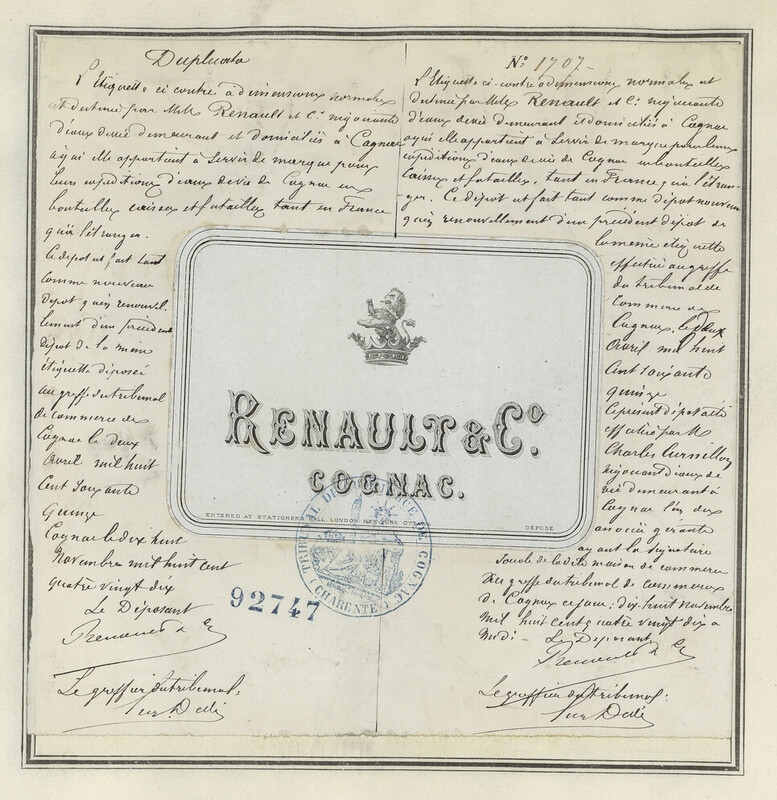 Duplicata
L'Etiquette ci contre a dimensions normales
est destinée par MM. Renault et Cie négociants
d'eaux de vie demeurant et domiciliés à Cognac
à qui elle appartient à servir de marque pour
leurs expéditions d'eaux de vie de Cognac en
bouteilles caisses et futailles tant en France
qu'à l'étranger.
Ce dépot est fait tant
comme nouveau
dépot qu'en renouvel-
lement d'un précédent
dépot de la même
étiquette déposée
au greffe du tribunal
de commerce de
Cognac le deux
avril mil huit
cent soixante
quinze
Cognac le dix huit
novembre mil huit cent
quatre vingt dix
Le Déposant
Renault & Cie
Le greffier du tribunal:
No 1707.
L'Etiquette ci-contre a dimensions normales est
destinée par MM. Renault et Cie négociants
d'eaux de vie demeurant et domiciliés à Cognac
à qui elle appartient à servir de marque pour leurs
expéditions d'eaux de vie de Cognac en bouteilles
caisses et futailles, tant en France qu'à l'étran-
-ger. Ce dépot est fait tant comme dépot nouveau
qu'en renouvellement d'un précédent dépot de
la même étiquette
effectué au greffe
du tribunal de
Commerce de
Cognac, le deux
avril mil huit
cent soixante
quinze
Le présent dépot a été
effectué par M
Charles
négociant d'eaux de
vie demeurant à
Cognac l'un des
associés gérants
ayant la signature
sociale de la dite maison de commerce
Au greffe du tribunal de commerce
de Cognac ce jour; dix huit novembre
mil huit cent quatre vingt dix à
midi - Le Déposant
Renault & Cie
Le greffier du tribunal:
RENAULT & Co.
COGNAC.
ENTERED AT STATIONERS HALL LONDON NEW YORK
DÉPOSÉ
TRIBUNAL DE COMMERCE DE COGNAC
(CHARENTE)
92747